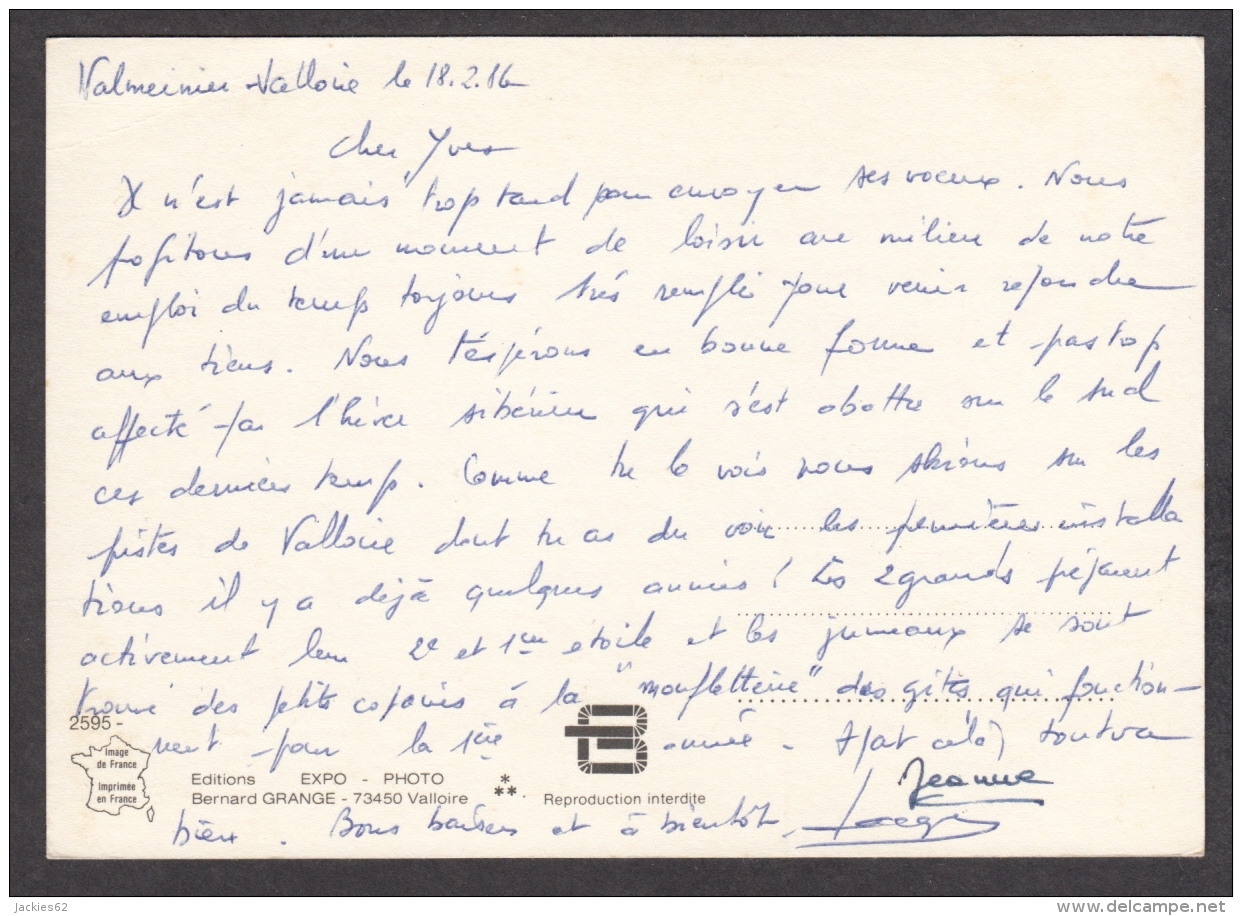 Valmeinier-Valloire le 18.2.86
Cher Yves
Il n'est jamais trop tard pour envoyer ses voeux. Nous
profitons d'un moment de loisir au milieu de notre
emploi du temps toujours très rempli pour venir répondre
aux tiens. Nous t'espérons en bonne forme et pas trop
affecté par l'hiver sibérien qui s'est abattu sur le sud
ces derniers temps. Comme tu le vois nous skions sur les
pistes de Valloire dont tu as du voir les premières installa
tions il y a déjà quelques années! Les 2 grands préparent
activement leur 2e et 1ère étoile et les jumeaux se sont
trouvé des petits copains à la "mouffletterie" des gîtes qui fonction-
nent pour la 1ère année. Apart cela, tout va
bien. Bons baisers et à bientôt.
Jeanne
2595-
Image
de France
Imprimée
en France
Editions EXPO - PHOTO
Bernard GRANGE - 73450 Valloire
*
**.
Reproduction interdite
jackies62
www.delcampe.net